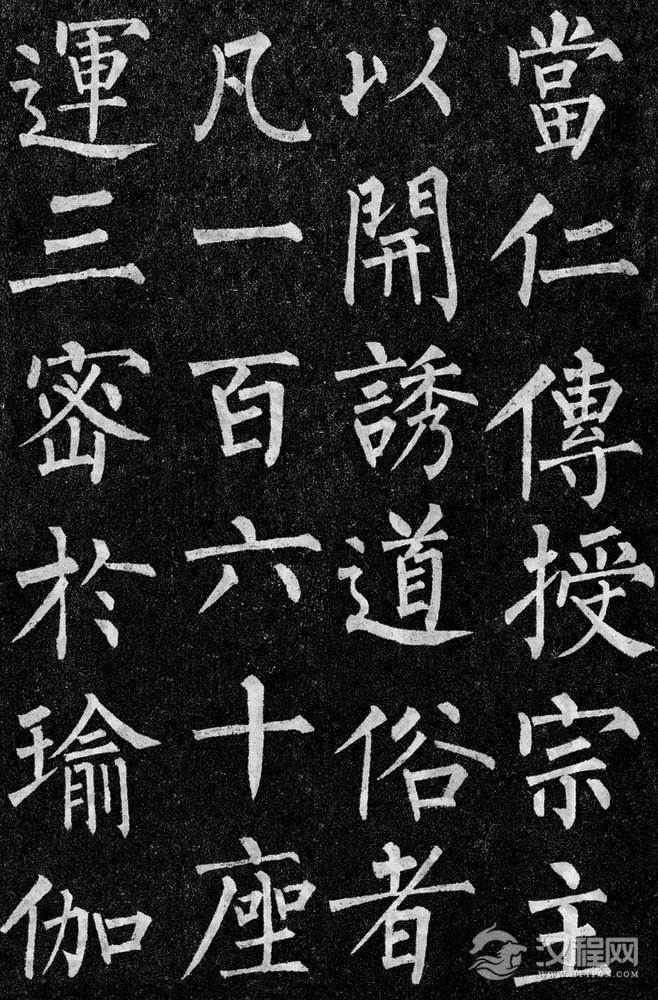 當仁傳授宗主
以開誘道俗者
凡一百六十座
運三密於瑜伽
汉程网
WWW.HTTPCN.COM